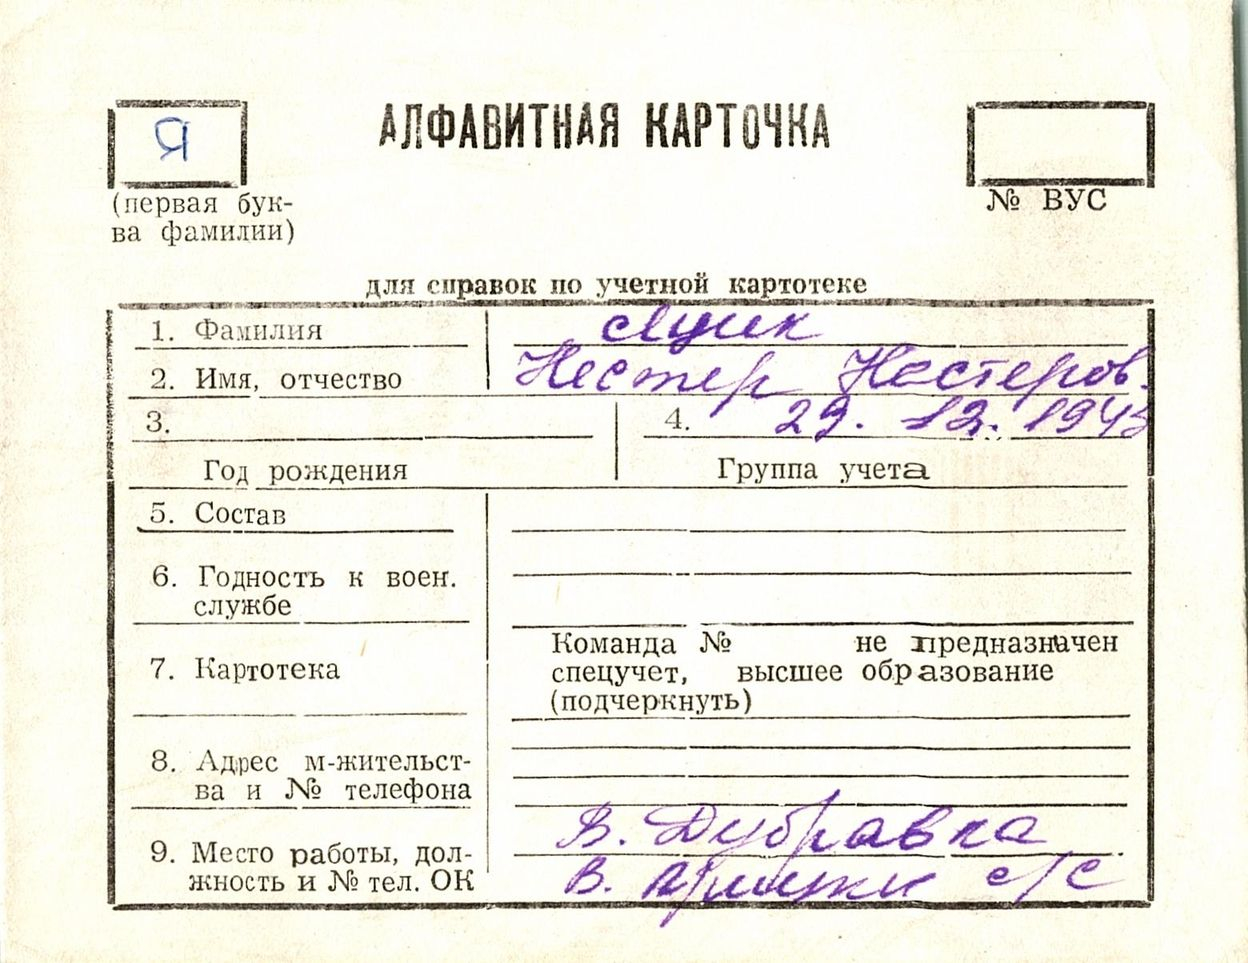 Я
АЛФАВИТНАЯ КАРТОЧКА
(первая бук-
ва фамилии)
№ ВУС
для справок по учетной картотеке
1. Фамилия Яцик
2. Имя, отчество Нестер Нестеров.
3. 4. 29. 12. 1943
Год рождения Группа учета
5. Состав
6. Годность к воен.
службе
7. Картотека
Команда № не предназначен
спецучет, высшее образование
(подчеркнуть)
8. Адрес м-жительст-
ва и № телефона
В. Дубравка
9. Место работы, дол-
жность и № тел. ОК
В. с/с